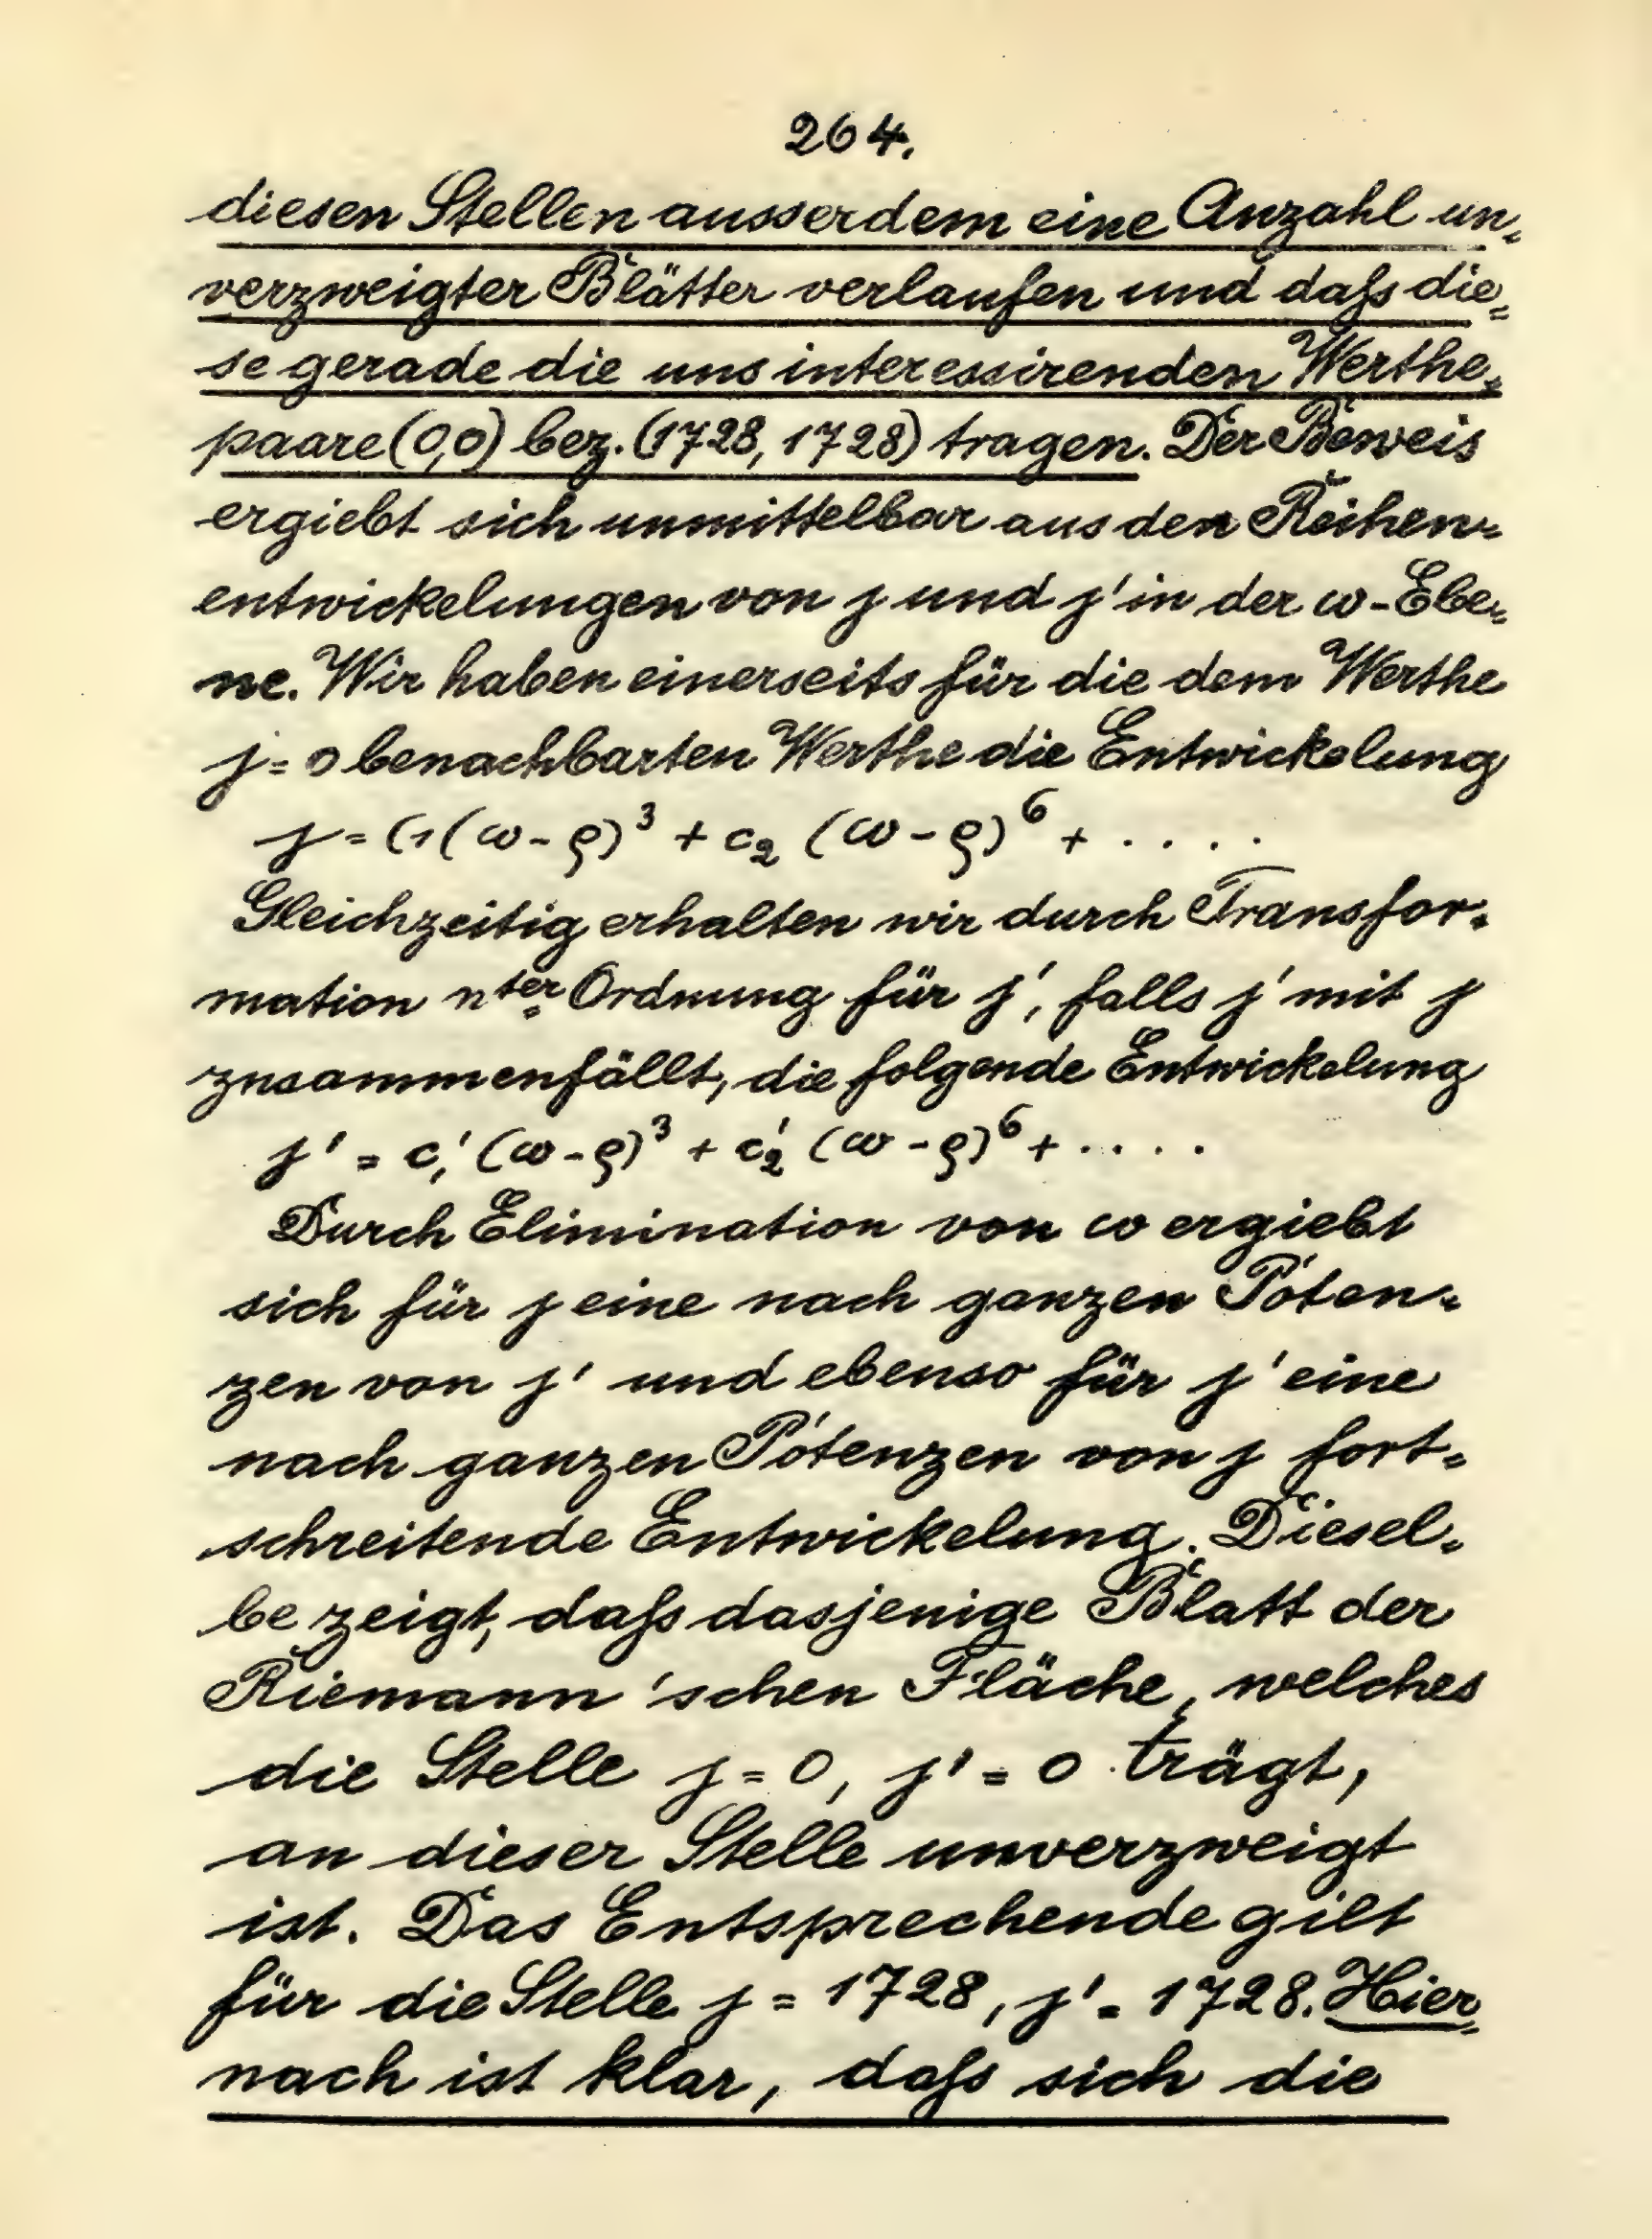 264.
diesen Stellen ausserdem eine Anzahl un-
verzweigter Blätter verlaufen und daſs die-
se gerade die uns interessirenden Werthe-
paare (0,0) bez. (1728, 1728) tragen. Der Beweis
ergiebt sich unmittelbar aus den Reihen-
entwickelungen von j und j' in der ω-Ebe-
ne. Wir haben einerseits für die dem Werthe
j = 0 benachbarten Werthe die Entwickelung
j = c₁(ω-ϱ)³ + c₂ (ω-ϱ)⁶ + . . . .
Gleichzeitig erhalten wir durch Transfor-
mation nter Ordnung für j', falls j' mit j
zusammenfällt, die folgende Entwickelung
j' = c₁' (ω-ϱ)³ + c₂' (ω-ϱ)⁶ + . . . .
Durch Elimination von ω ergiebt
sich für j eine nach ganzen Poten-
zen von j' und ebenso für j' eine
nach ganzen Potenzen von j fort-
schreitende Entwickelung. Diesel-
be zeigt, daſs dasjenige Blatt der
Riemann'schen Fläche, welches
die Stelle j = 0, j' = 0 trägt,
an dieser Stelle unverzweigt
ist. Das Entsprechende gilt
für die Stelle j = 1728, j' = 1728. Hier-
nach ist klar, daſs sich die